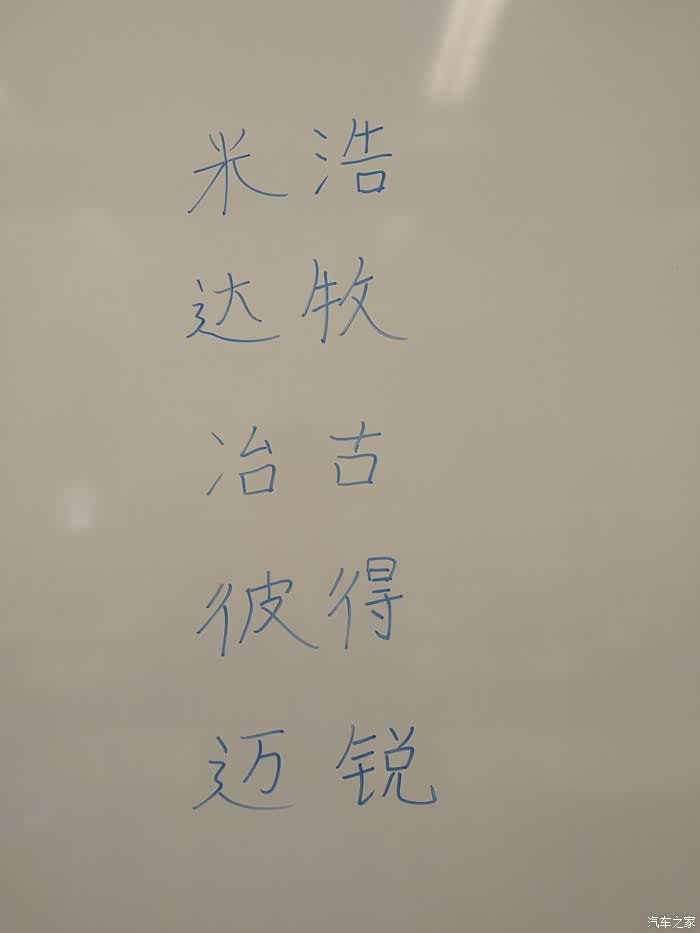 米浩
达牧
冶古
彼得
迈锐
汽车之家